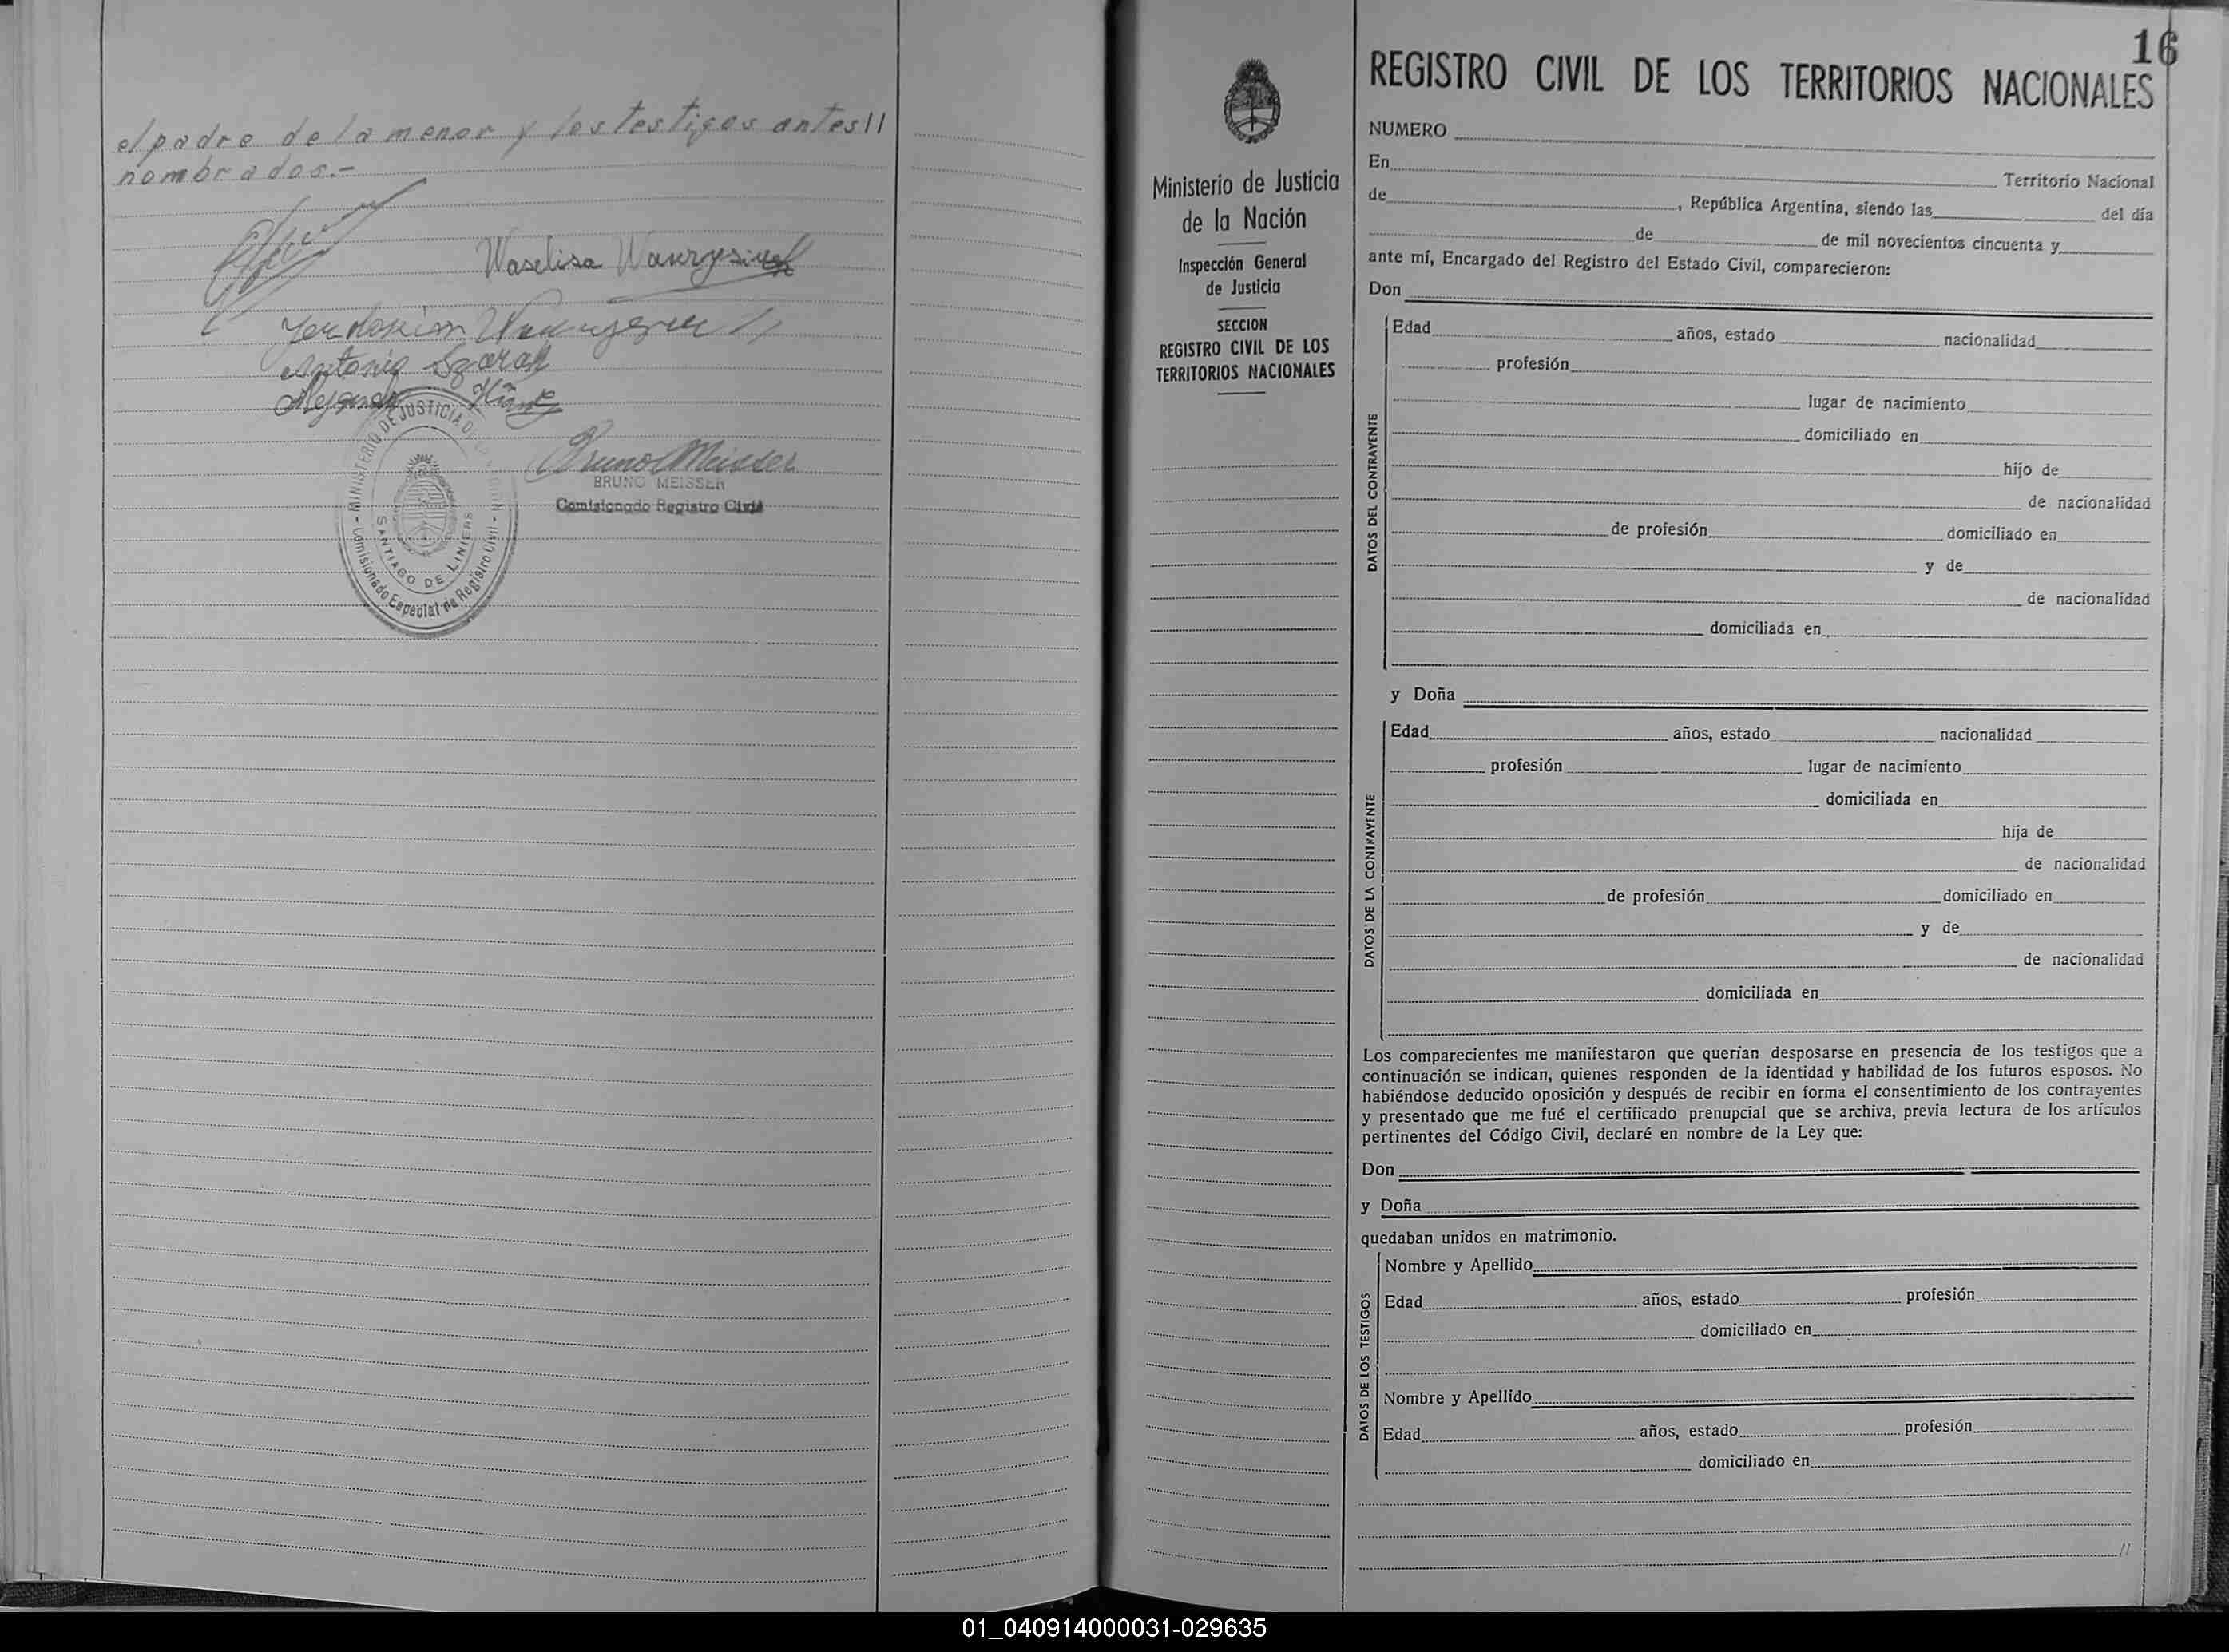 el padre de la menor y los testigos antes//
nombrados.-
Waselisa
Antonio
BRUNO MEISSER
Bruno Meisser
Comisionado Registro Civil
MINISTERIO DE JUSTICIA DE LA
Comisionado Especial de Registro Civil
SANTIAGO DE LINIERS
16
REGISTRO CIVIL DE LOS TERRITORIOS NACIONALES
Ministerio de Justicia
de la Nación
Inspección General
de Justicia
SECCION
REGISTRO CIVIL DE LOS
TERRITORIOS NACIONALES
NUMERO
En Territorio Nacional
de , República Argentina, siendo las del día
de de mil novecientos cincuenta y
ante mí, Encargado del Registro del Estado Civil, comparecieron:
Don
DATOS DEL CONTRAYENTE
Edad años, estado nacionalidad
profesión
lugar de nacimiento
domiciliado en
hijo de
de nacionalidad
de profesión domiciliado en
y de
de nacionalidad
domiciliada en
y Doña
DATOS DE LA CONTRAYENTE
Edad años, estado nacionalidad
profesión lugar de nacimiento
domiciliada en
hija de
de nacionalidad
de profesión domiciliado en
y de
de nacionalidad
domiciliada en
Los comparecientes me manifestaron que querían desposarse en presencia de los testigos que a
continuación se indican, quienes responden de la identidad y habilidad de los futuros esposos. No
habiéndose deducido oposición y después de recibir en forma el consentimiento de los contrayentes
y presentado que me fué el certificado prenupcial que se archiva, previa lectura de los artículos
pertinentes del Código Civil, declaré en nombre de la Ley que:
Don
y Doña
quedaban unidos en matrimonio.
DATOS DE LOS TESTIGOS
Nombre y Apellido
Edad años, estado profesión
domiciliado en
Nombre y Apellido
Edad años, estado profesión
domiciliado en
//
01_040914000031-029635